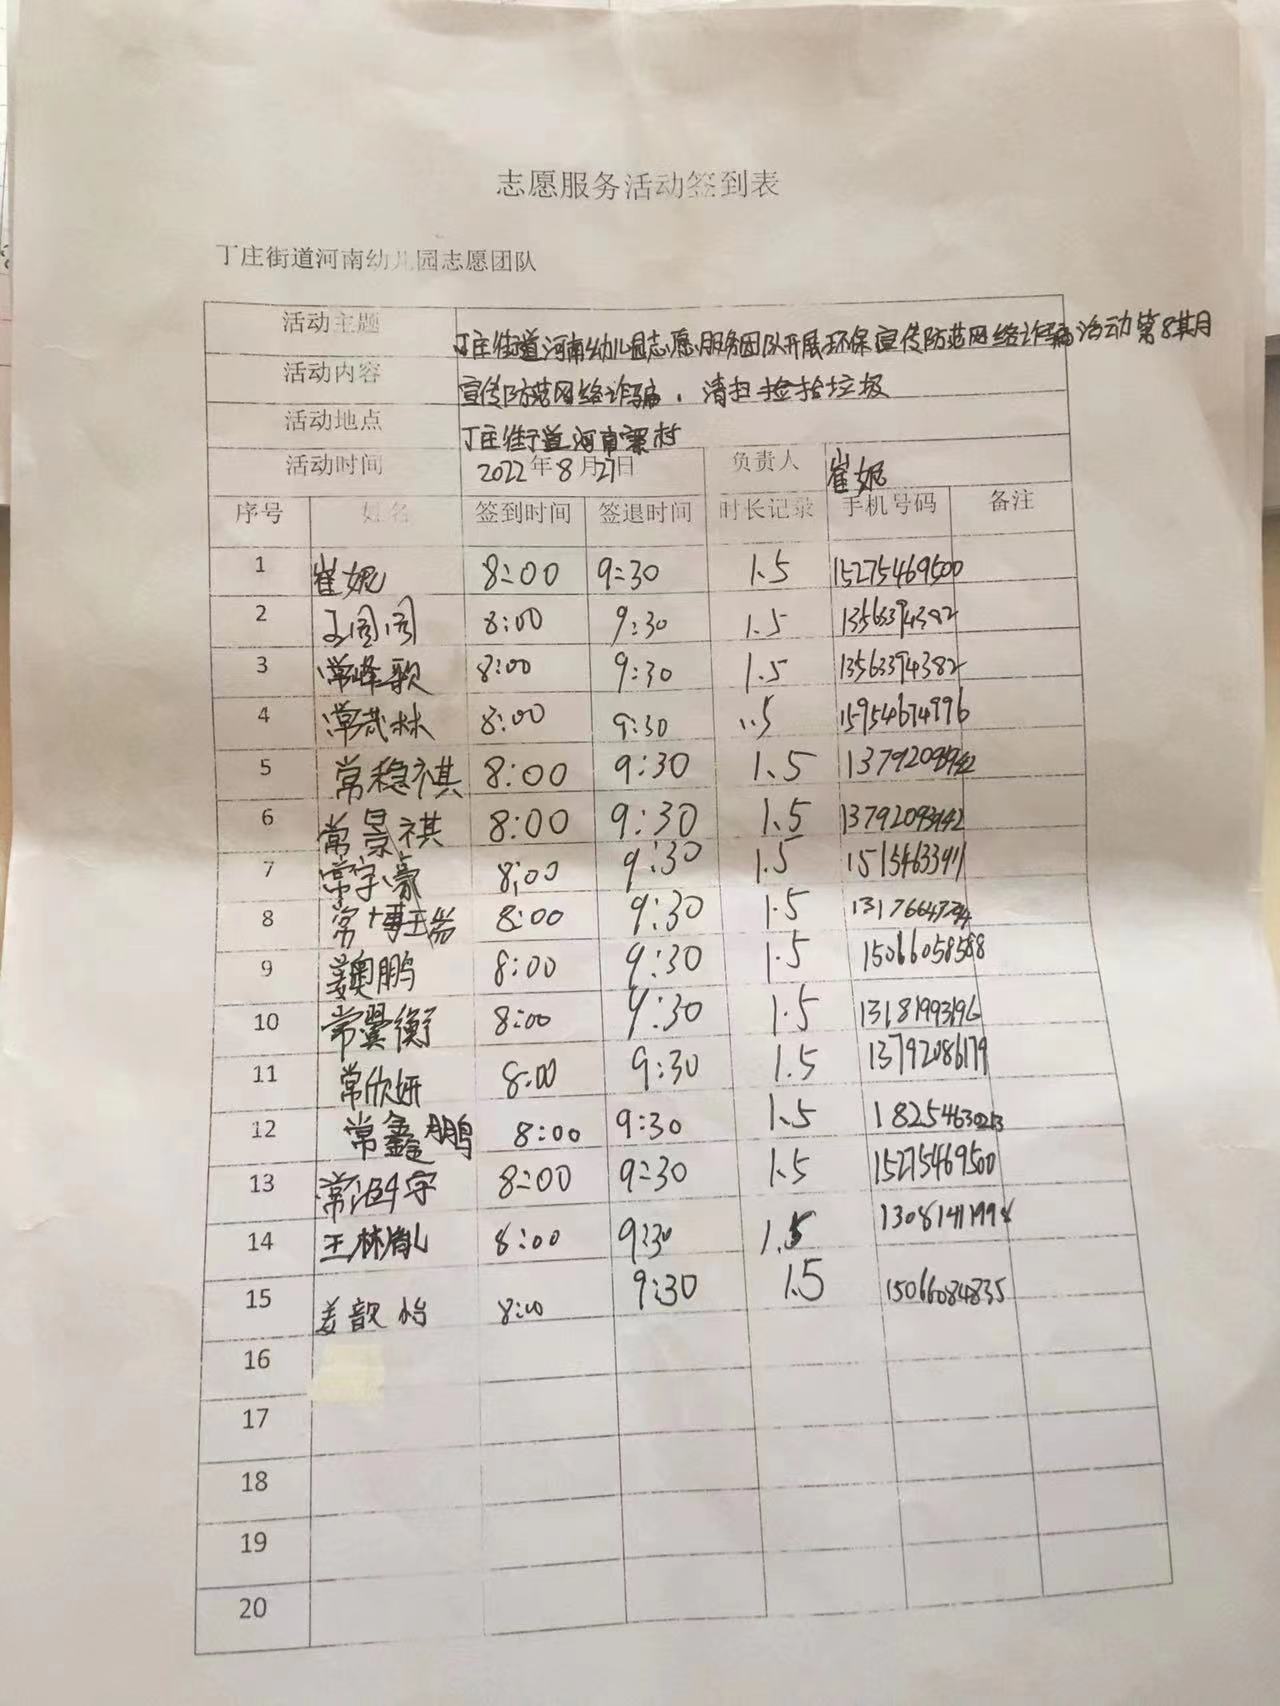 志愿服务活动签到表
丁庄街道河南幼儿园志愿团队
活动主题 丁庄街道河南幼儿园志愿服务团队开展环保宣传防范网络诈骗活动第8期
活动内容 宣传防范网络诈骗，清扫捡拾垃圾
活动地点 丁庄街道河南寨村
活动时间 2022年8月27日 负责人 崔妮
序号 姓名 签到时间 签退时间 时长记录 手机号码 备注
1 崔妮 8:00 9:30 1.5 15275469500
2 王园园 8:00 9:30 1.5 13563394382
3 常峰歌 8:00 9:30 1.5 13563394382
4 常武林 8:00 9:30 1.5 15954674996
5 常稳祺 8:00 9:30 1.5
6 常景祺 8:00 9:30 1.5 13792093942
7 常宇豪 8:00 9:30 1.5
8 8:00 9:30 1.5
9 姜奥鹏 8:00 9:30 1.5 15066058588
10 常翼衡 8:00 9:30 1.5 13181993196
11 常欣妍 8:00 9:30 1.5 13792086179
12 常鑫鹏 8:00 9:30 1.5
13 8:00 9:30 1.5 15275469500
14 王林胤 8:00 9:30 1.5
15 姜歆怡 8:00 9:30 1.5 15066084835
16
17
18
19
20